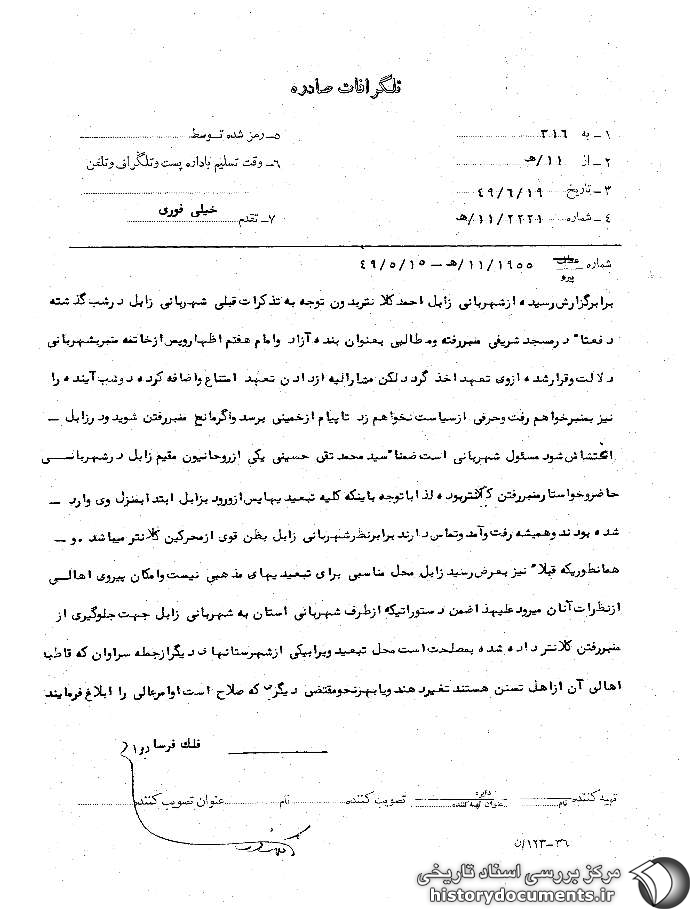 تلگرافات صادره
۱ـ به ۳۱۶
۵ـ رمز شده توسط
۲ـ از ۱۱/هـ
۶ـ وقت تسلیم باداره پست وتلگراف وتلفن
۳ـ تاریخ ۴۹/۶/۱۹
۴ـ شماره ۱۱/۲۲۲۱/هـ
۷ـ تقدم خیلی فوری
شماره عطف
پیرو ۱۱/۱۹۵۵/هـ ـ ۴۹/۵/۱۵
برابرگزارش رسیده ازشهربانی زابل احمد کلانتربدون توجه به تذکرات قبلی شهربانی زابل درشب گذشته
دفعتا" درمسجد شریفی منبررفته ومطالبی بعنوان بنده آزاد وامام هفتم اظهاروپس ازخاتمه منبربشهربانی
دلالت وقرارشده ازوی تعهد اخذ گردد لکن مشارالیه ازدادن تعهد امتناع واضافه کرده دوشب آینده را
نیز بمنبرخواهم رفت وحرفی ازسیاست نخواهم زد تاپیام ازخمینی برسد واگرمانع منبررفتن شوید ودرزابل ـ
اغتشاش شود مسئول شهربانی است ضمنا" سید محمد تقی حسینی یکی ازروحانیون مقیم زابل درشهربانـــی
حاضروخواستارمنبررفتن کلانتربوده لذا باتوجه باینکه کلیه تبعیدیهاپس ازورود بزابل ابتدا بمنزل وی وارد ـ
شده بودند وهمیشه رفت وآمد وتماس دارند برابرنظرشهربانی زابل بظن قوی ازمحرکین کلانتر میباشد .و ـ
همانطوریکه قبلا" نیز بعرض رسید زابل محل مناسبی برای تبعیدیهای مذهبی نیست وامکان پیروی اهالـی
ازنظرات آنان میرود علیهذا ضمن دستوراتیکه ازطرف شهربانی استان به شهربانی زابل جهت جلوگیری از
منبررفتن کلانتر داده شده بمصلحت است محل تبعید ویرابیکی ازشهرستانهای دیگرازجمله سراوان که قاطبه
اهالی آن ازاهل تسنن هستند تغییردهند ویابهرنحومقتضی دیگری که صلاح است اوامرعالی را ابلاغ فرمایند
فلک فرسا
تهیه کننده
نام
دایره
عنوان تهیه کننده
تصویب کننده
نام
عنوان تصویب کننده
۳۶ـ۱۲۳/ن
مرکز بررسی اسناد تاریخی
historydocuments.ir